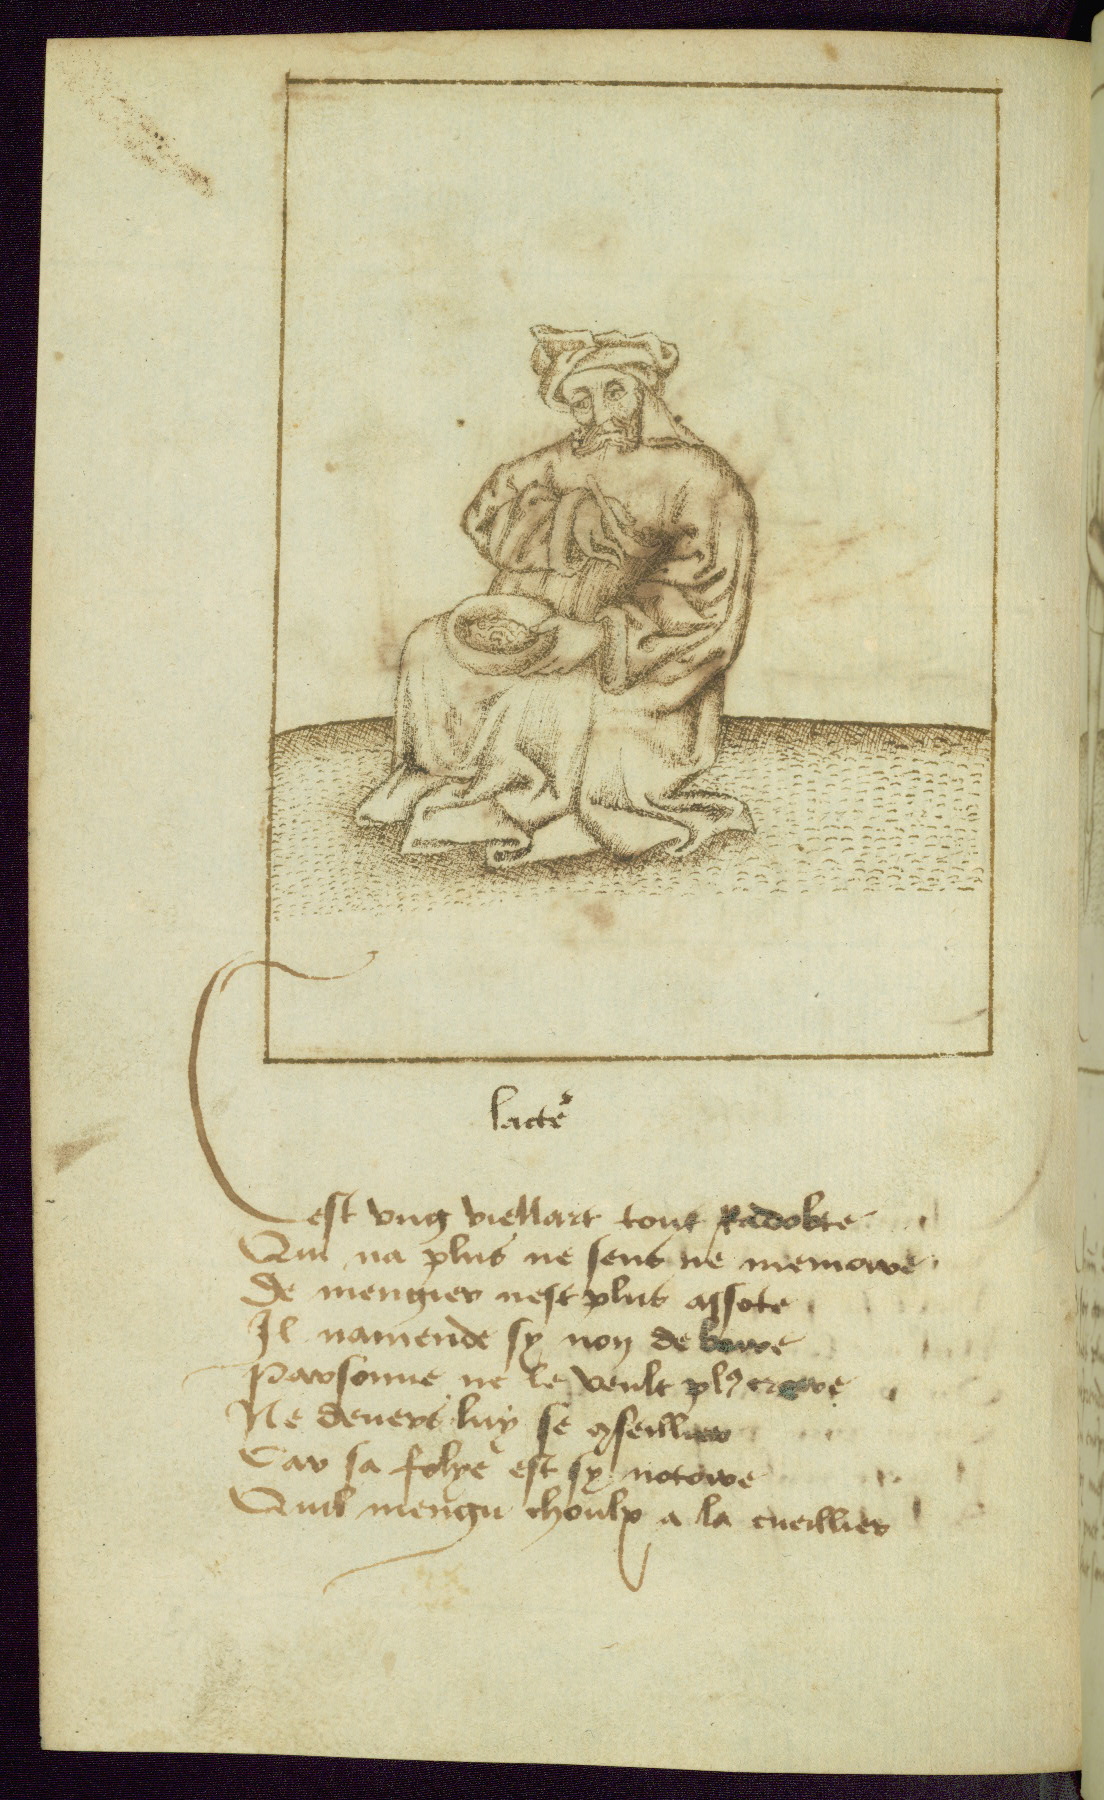 lacteᵉ
Cest vng viellart tout Radobte
Qui na plus ne sens ne memoire
De mengier nest plus assote
Il namende sy non de boire
Parsonne ne le veult plꝰ croire
Ne devers luy se ꝯseillier
Car sa folye est sy notoire
Quil mengu choulx a la cueillier